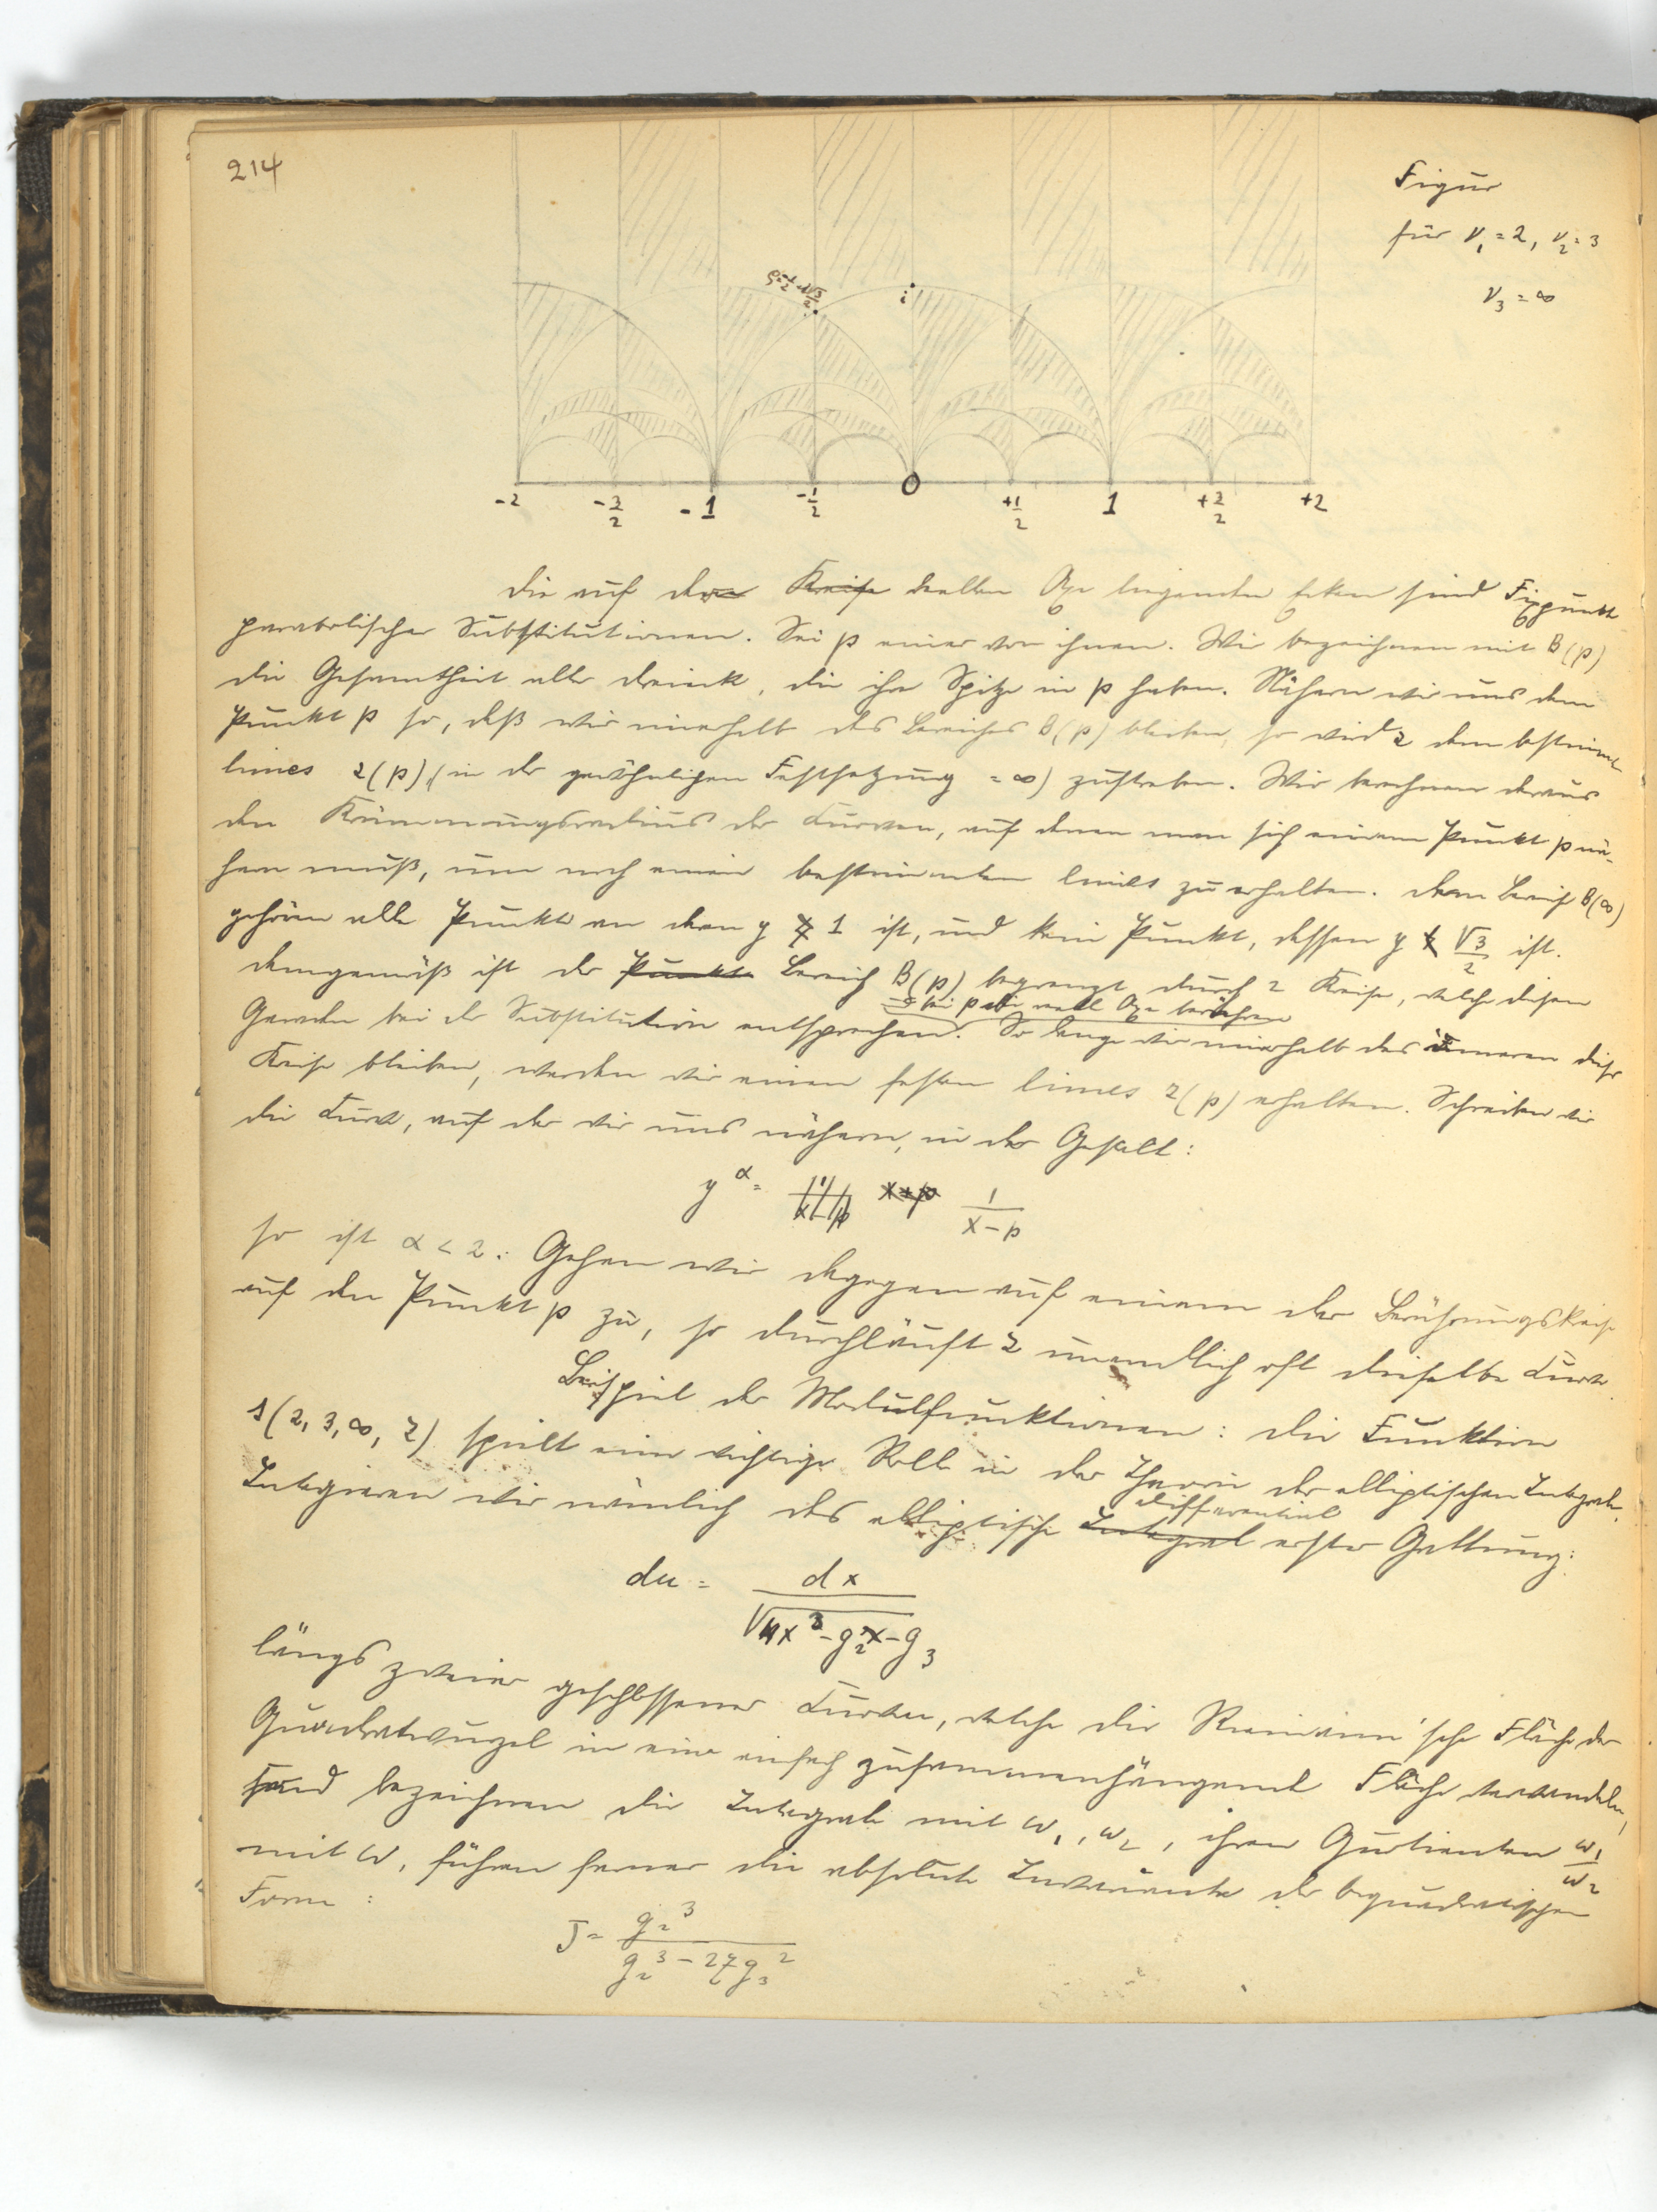 214
Figur
für ν₁ = 2, ν₂ = 3
ν₃ = ∞
ρ = -1/2 + i√3/2
i
-2 -3/2 -1 -1/2 0 +1/2 1 +3/2 +2
Die auf der Kreise reellen Axe liegenden Ecken sind Fixpunkte
parabolischer Substitutionen. Sei p einer von ihnen. Wir bezeichnen mit B(p)
die Gesamtheit aller Dreiecke, die ihre Spitze in p haben. Nähern wir uns dem
Punkt p so, daß wir innerhalb des Bereiches B(p) bleiben, so wird z dem bestimmten
limes z(p) (in der gewöhnlichen Festsetzung = ∞) zustreben. Wir berechnen daraus
den Krümmungsradius der Curven, auf denen man sich einem Punkt p nä-
hern muß, um noch einen bestimmten limes zu erhalten. Dem Bereich B(∞)
gehören alle Punkte an deren y > 1 ist, und kein Punkt, dessen y < √3/2 ist.
Demgemäß ist der Punkt Bereich B(p) begrenzt durch 2 Kreise, welche diesen
die bei p die reelle Axe berühren
Geraden bei der Substitution entsprechen. So lange wir innerhalb des inneren dieser
Kreise bleiben, werden wir einen festen limes z(p) erhalten. Schreiben wir
die Curve, auf der wir uns nähern, in der Gestalt:
y^α = 1/(x-p)
so ist α < 2. Gehen wir dagegen auf einem der Berührungskreise
auf den Punkt p zu, so durchläuft z unendlich oft dieselbe Curve.
Beispiel der Modulfunktionen: Die Funktion
s(2, 3, ∞, z) spielt eine wichtige Rolle in der Theorie der elliptischen Integrale.
Differential
Integrieren wir nämlich das elliptische Integral erster Gattung:
du = dx/√(4x³ - g₂x - g₃)
längs zweier geschlossener Curven, welche die Riemann'sche Fläche der
Quadratwurzel in eine einfach zusammenhängende Fläche verwandeln,
und bezeichnen die Integrale mit ω₁, ω₂, ihren Quotienten ω₁/ω₂
mit ω, führen ferner die absolute Invariante der biquadratischen
Form:
J = g₂³/(g₂³ - 27g₃²)